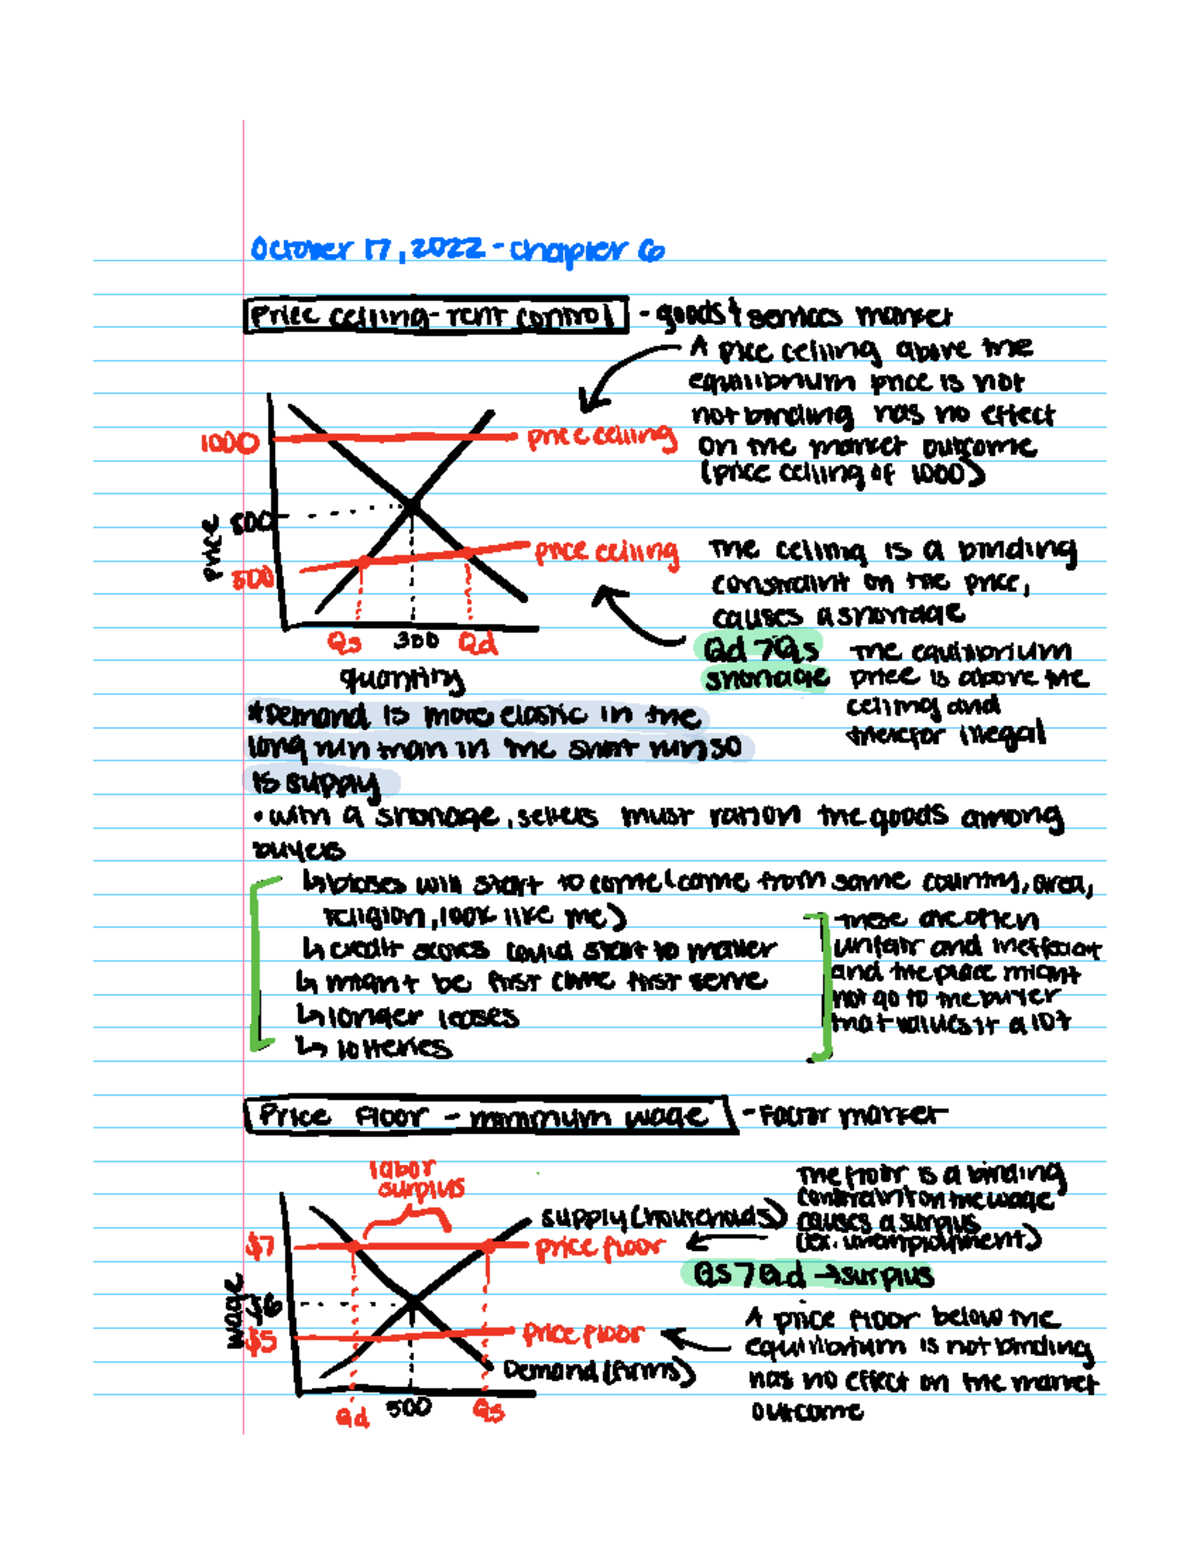 October 17, 2022 - chapter 6
Price ceiling - rent control - goods & services market
A price ceiling above the
equilibrium price is not
not binding has no effect
on the market outcome
(price ceiling of 1000)
1000
price ceiling
price
800
500
price ceiling
The ceiling is a binding
constraint on the price,
causes a shortage
Qs 300 Qd
quantity
Qd > Qs
shortage
the equilibrium
price is above the
ceiling and
therefor illegal
*Demand is more elastic in the
long run than in the short run so
is supply
• with a shortage, sellers must ration the goods among
buyers
↳ biases will start to come (come from same country, area,
religion, look like me)
↳ credit scores could start to matter
↳ might be first come first serve
↳ longer leases
↳ lotteries
these are often
unfair and inefficient
and the place might
not go to the buyer
that values it a lot
Price Floor - minimum wage - Factor market
labor
surplus
The floor is a binding
constraint on the wage
causes a surplus
(ex. unemployment)
supply (households)
$7
price floor
Qs > Qd → surplus
wage
$6
$5
price floor
Demand (firms)
A price floor below the
equilibrium is not binding
has no effect on the market
outcome
Qd 500 Qs